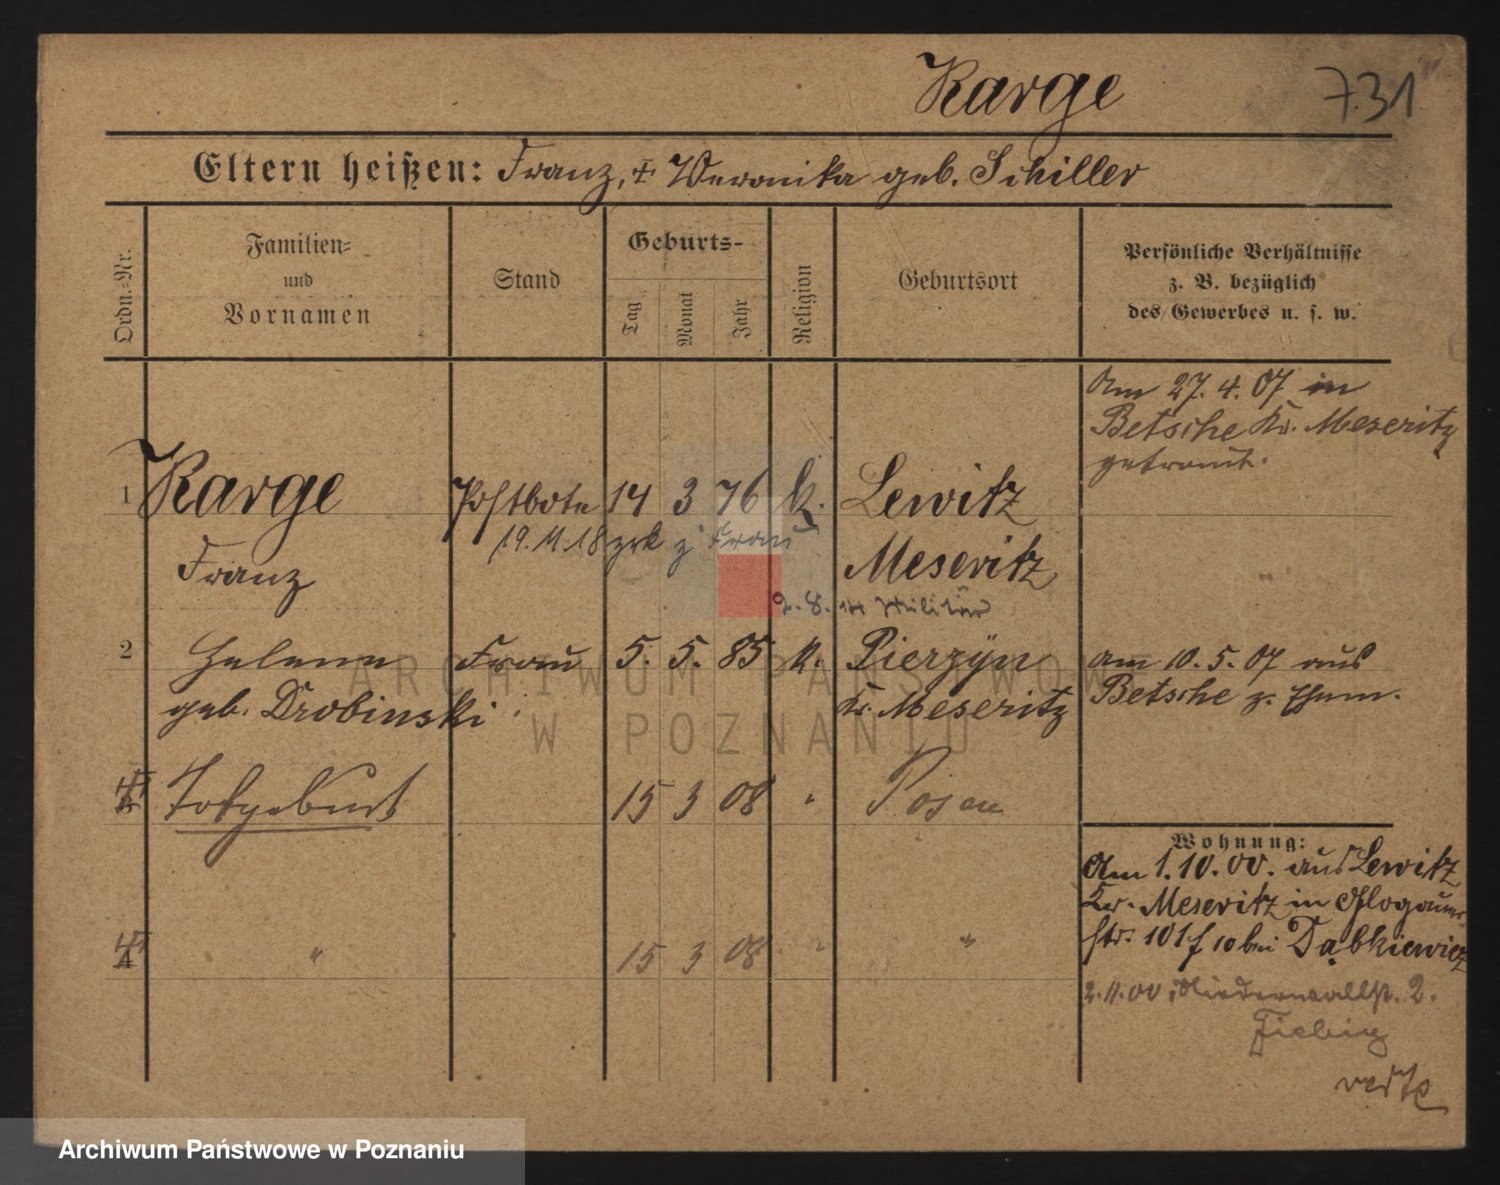 Karge 731
Eltern heißen: Franz, + Weronika geb. Schiller
Ordn.-Nr.
Familien-
und
Vornamen
Stand
Geburts-
Tag
Monat
Jahr
Religion
Geburtsort
Persönliche Verhältnisse
z. B. bezüglich
des Gewerbes u. s. w.
Am 27. 4. 07 in
Betsche Kr. Meseritz
getraut.
1 Karge Postbote 14 3 76 k. Lewitz
19.11.18 zrk z Frau
Franz Meseritz
2.8.14 Militär
2 Helene Frau 5. 5. 85 k. Pierzyn am 10. 5. 07 aus
geb. Drobinski Kr. Meseritz Betsche z. Ehem.
Totgeburt 15 3 08 " Posen
Wohnung:
Am 1.10.00. aus Lewitz
Kr. Meseritz in Glogauer-
str. 101 bei Dąbkiewicz
" 15 3 08 " "
2.11.00 Niederwallstr. 2.
Fiebig
verte
ARCHIWUM PAŃSTWOWE
W POZNANIU
Archiwum Państwowe w Poznaniu